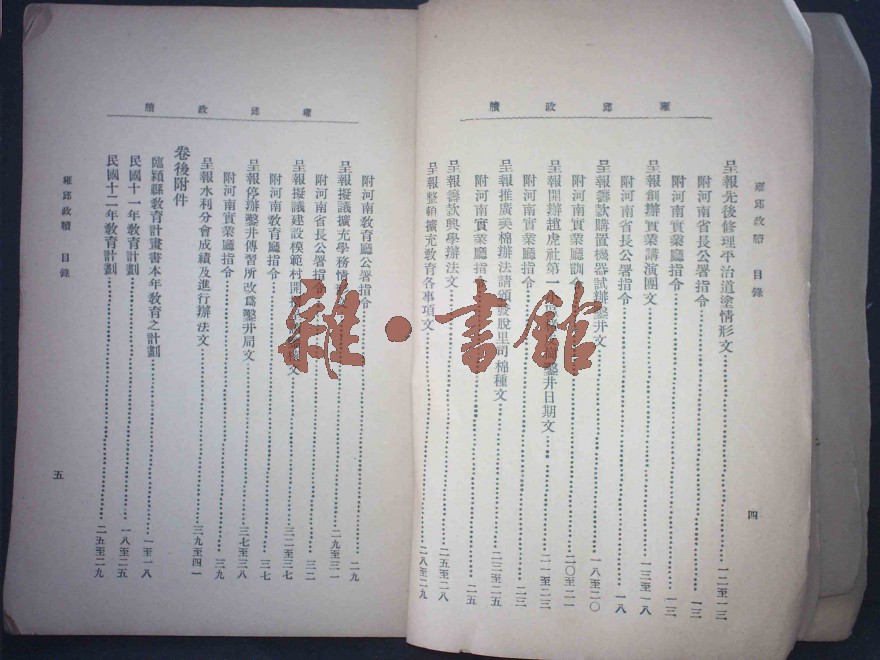 雍邱政牘
雍邱政牘 目錄
呈報先後修理平治道塗情形文 一二至一三
附河南省長公署指令 一三
附河南實業廳指令 一三
呈報創辦實業講演團文 一三至一八
附河南省長公署指令 一八
呈報籌款購置機器試辦鑿井文 一八至二〇
附河南實業廳訓令 二〇至二一
呈報開辦趙虎社第一 鑿井日期文 二一至二三
附河南實業廳指令 二三
呈報推廣美棉辦法請頒發脫里司棉種文 二三至二五
附河南實業廳指令 二五
呈報籌款興學辦法文 二五至二八
呈報整頓擴充教育各事項文 二八至二九
四
雍邱政牘
附河南教育廳公署指令 二九
呈報擬議擴充學務情 文 二九至三一
附河南省長公署指令 三二
呈報擬議建設模範村開 文 三二至三七
附河南教育廳指令 三七
呈報停辦鑿井傳習所改爲鑿井局文 三七至三八
附河南實業廳指令 三九
呈報水利分會成績及進行辦法文 三九至四一
卷後附件
臨潁縣教育計畫書本年教育之計劃 一至一八
民國十一年教育計劃 一八至二五
民國十二年教育計劃 二五至二九
雍邱政牘 目錄
五
雜·書館